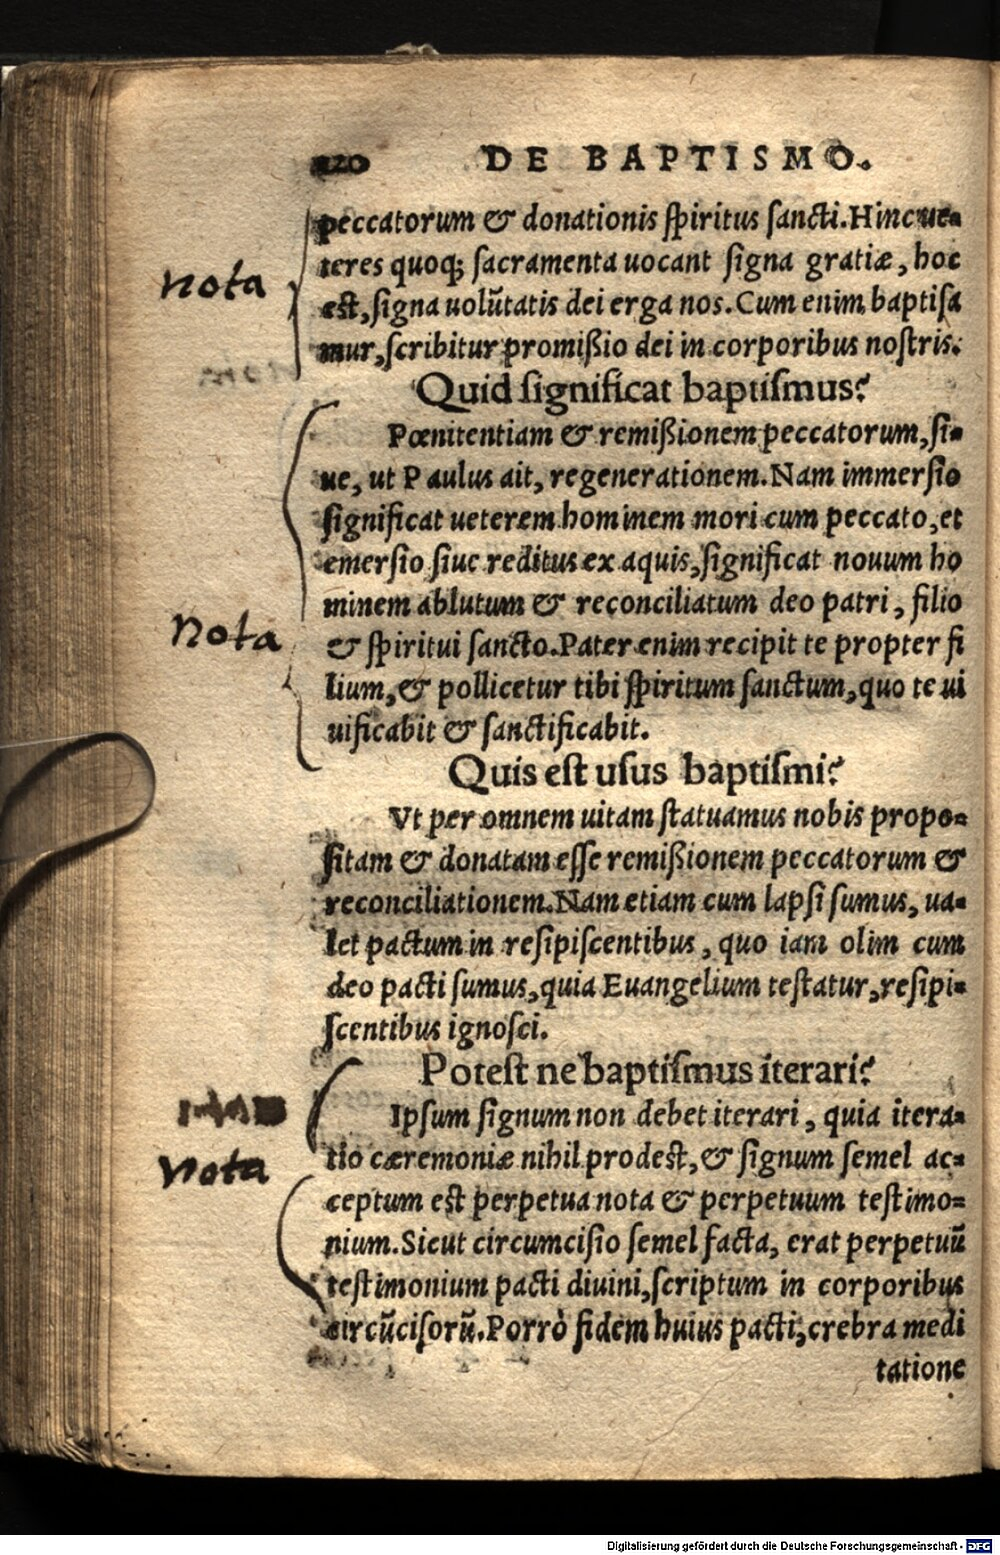 220 DE BAPTISMO.
peccatorum & donationis ſpiritus ſancti. Hinc ue-
teres quoq; ſacramenta uocant ſigna gratiæ, hoc
Nota
est, ſigna uolũtatis dei erga nos. Cum enim baptiſa
mur, ſcribitur promißio dei in corporibus noſtris.
Quid ſignificat baptiſmus?
Pœnitentiam & remißionem peccatorum, ſi-
ue, ut Paulus ait, regenerationem. Nam immerſio
ſignificat ueterem hominem mori cum peccato, et
emerſio ſiue reditus ex aquis, ſignificat nouum ho
minem ablutum & reconciliatum deo patri, filio
Nota
& ſpiritui ſancto. Pater enim recipit te propter fi
lium, & pollicetur tibi ſpiritum ſanctum, quo te ui
uificabit & ſanctificabit.
Quis est uſus baptiſmi?
Vt per omnem uitam ſtatuamus nobis propo-
ſitam & donatam eſſe remißionem peccatorum &
reconciliationem. Nam etiam cum lapſi ſumus, ua-
let pactum in reſipiſcentibus, quo iam olim cum
deo pacti ſumus, quia Euangelium teſtatur, reſipi-
ſcentibus ignoſci.
Potest ne baptiſmus iterari?
Ipſum ſignum non debet iterari, quia itera-
Nota
tio cæremoniæ nihil prodest, & ſignum ſemel ac-
ceptum est perpetua nota & perpetuum teſtimo-
nium. Sicut circumciſio ſemel facta, erat perpetuũ
teſtimonium pacti diuini, ſcriptum in corporibus
circũciſorũ. Porrò fidem huius pacti, crebra medi
tatione
Digitalisierung gefördert durch die Deutsche Forschungsgemeinschaft - DFG